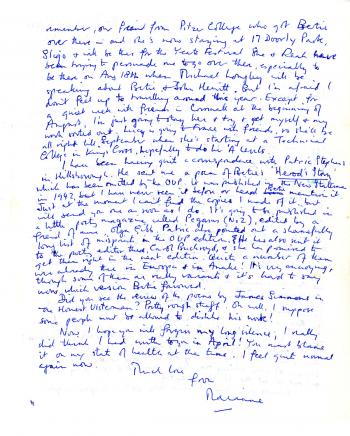 remember, our friend from Pitzer College who got Bertie
over there – and she's now staying at 17 Doorly Park,
Sligo & will be there for the Yeats Festival. She & have
been trying to persuade me to go over there, especially to
be there on Aug 18th when Michael Longley will be
speaking about Bertie & John Hewitt. But I'm afraid I
don't feel up to travelling around this year. Except for
a quiet week with friends in Cornwall at the beginning of
August, I'm just going to stay here & try & get myself & my
work sorted out. Lucy is going to France with friends, so she'll be
all right till September when she's starting at a Technical
College in King's Cross, hopefully to do her 'A' levels.
I have been having quite a correspondence with Patric Stephens
in Hillsborough. He sent me a poem of Bertie's 'Herod's Story'
which has been omitted by the OUP. It was published in the New Statesman
in 194 but I have never seen it before or heard Bertie mention it
Just at the moment I can't find the copies I made of it, but
will send you one as soon as I do. It's going to be published in
a little poetry magazine called Pegasus (No 2), edited by a
friend of mine, Patric also pointed out a shamefully
long list of misprints in the OUP edition. & He has also sent it
to the poetry editor there, Carol Buckroyd, & she has promised to
get them right in the next edition. Quite a number of them
were already there in Europa & in Drake! It's very annoying,
though some of them are really variants & it's hard to say
now which version Bertie favoured.
Did you see the review of the poems by James Simmons in
the Honest Ulsterman? Pretty rough stuff. Oh well, I suppose
some people must be allowed to dislike his work!
Now I hope you'll forgive my long silence; I really
did think I had written to you in April! You must blame
it on my state of health at the time. I feel quite normal
again now.
Much love
from
Marianne